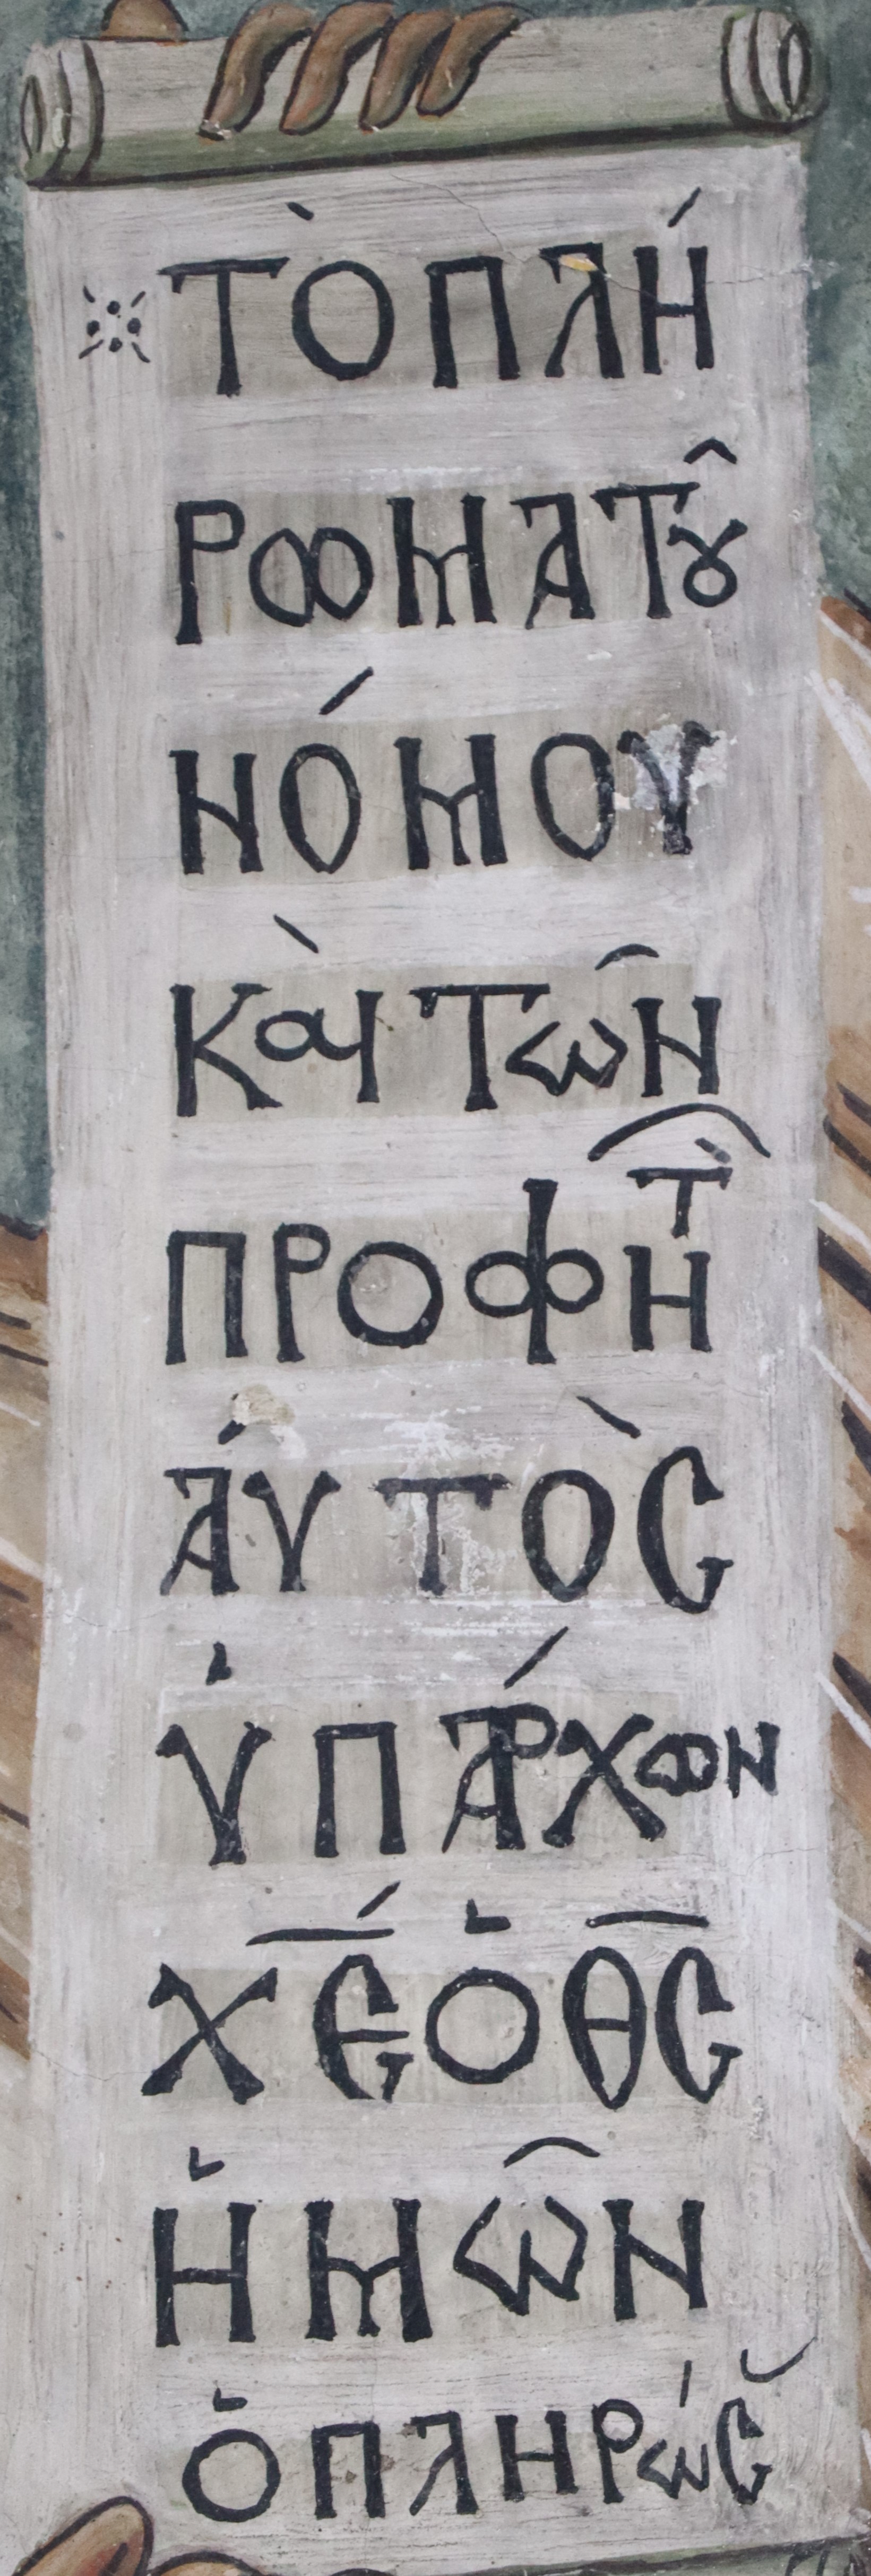 ΤῸ ΠΛΉ
ΡΩΜΑ ΤȢ͂
ΝΌΜΟΥ
ΚᾺΙ ΤΩ͂Ν
ΠΡΟΦΗΤ͂
ἈΥΤῸС
ὙΠΆΡΧΩΝ
Χ̅Ε̅́ Ὁ Θ̅С̅
ἩΜΩ͂Ν
Ὁ ΠΛΗΡΏС